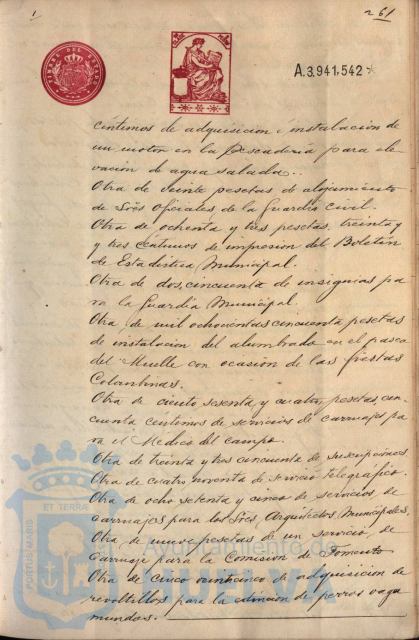 261
TIMBRE DEL ESTADO
A.3.941,542
centimos de adquisicion é instalacion de
un motor en la Pescaderia para ele
vacion de agua salada..
Otra de veinte pesetas de alojamiento
de Sres Oficiales de la Guardia Civil.
Otra de ochenta y tres pesetas, treinta y
y tres centimos de impresion del Boletin
de Estadistica Municipal.
Otra de dos, cincuenta de insignias pa
ra la Guardia Municipal.
Otra, de mil ochocientas cincuenta pesetas
de instalacion del alumbrado en el paseo
del Muelle con ocasion de las fiestas
Colombinas.
Otra de ciento sesenta y cuatro pesetas, cin
cuenta centimos de servicios de carruajes pa
ra el Medico del campo.
Otra de treinta y tres cincuenta de suscripciones
Otra de cuatro noventa de servicio telegráfico.
Otra de ocho setenta y cinco de servicios de
carruajes para los Sres Arquitectos Municipales.
Otra de nueve pesetas de un servicio, de
carruaje para la Comision de Fomento
Otra de cinco veinticinco de adquisicion de
revoltillos para la estincion de perros vaga
mundos.
PORTUS MARIS
ET TERRÆ
Ayuntamiento de